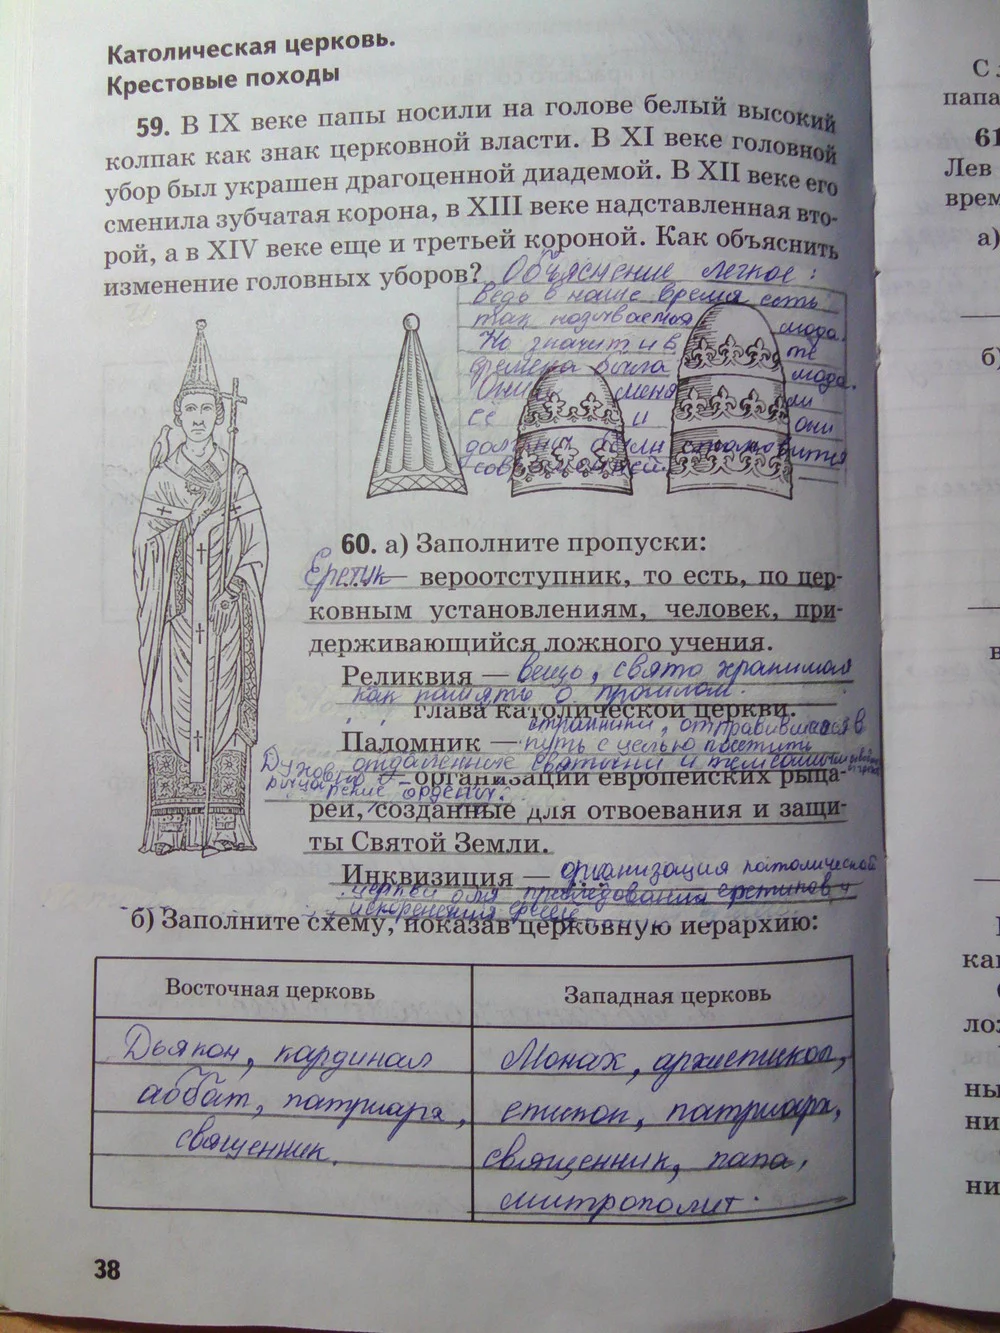 Католическая церковь.
Крестовые походы
59. В IX веке папы носили на голове белый высокий
колпак как знак церковной власти. В XI веке головной
убор был украшен драгоценной диадемой. В XII веке его
сменила зубчатая корона, в XIII веке надставленная вто-
рой, а в XIV веке еще и третьей короной. Как объяснить
изменение головных уборов? Объяснение легкое:
ведь в наше время есть
так называется мода.
Но значит и в те
времена была мода.
меня ли
её и они
должны были становится
60. а) Заполните пропуски:
Еретик — вероотступник, то есть, по цер-
ковным установлениям, человек, при-
держивающийся ложного учения.
Реликвия — вещь, свято хранимая
как память о прошлом.
глава католической церкви.
странники, отправившиеся в
Паломник — путь с целью посетить
отдаленные святыни и тем самым
Духовно — организации европейских рыца-
рыцарские ордены:
рей, созданные для отвоевания и защи-
ты Святой Земли.
Инквизиция — организация католической
церкви для преследования еретиков и
искоренения ереси
б) Заполните схему, показав церковную иерархию:
Восточная церковь Западная церковь
Дьякон, кардинал Монах, архиепископ,
аббат, патриарх, епископ, патриарх,
священник. священник, папа,
митрополит.
38
С
папа
61
Лев
врем
а)
б)
в
ка
ло
ны
ни
ни